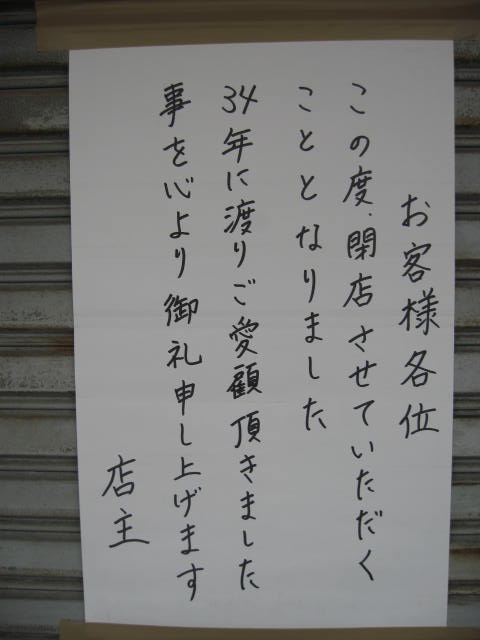 お客様各位
この度、閉店させていただく
こととなりました
34年に渡りご愛顧頂きました
事を心より御礼申し上げます
店主